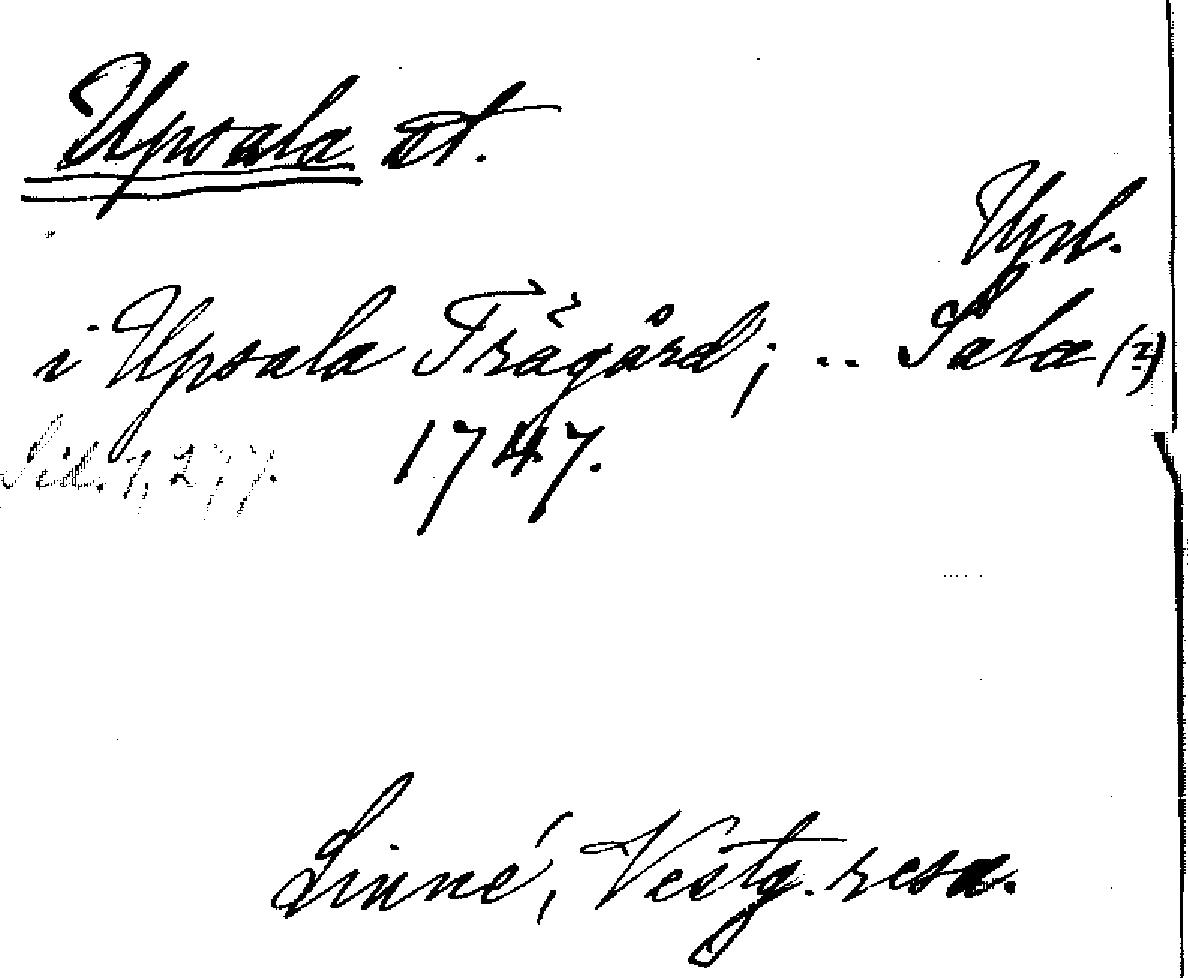 Upsala st.
Upl.
i Upsala Trägård; .. Sala (2)
Sid. 1, 277. 1747.
Linné, Vestg. resa.